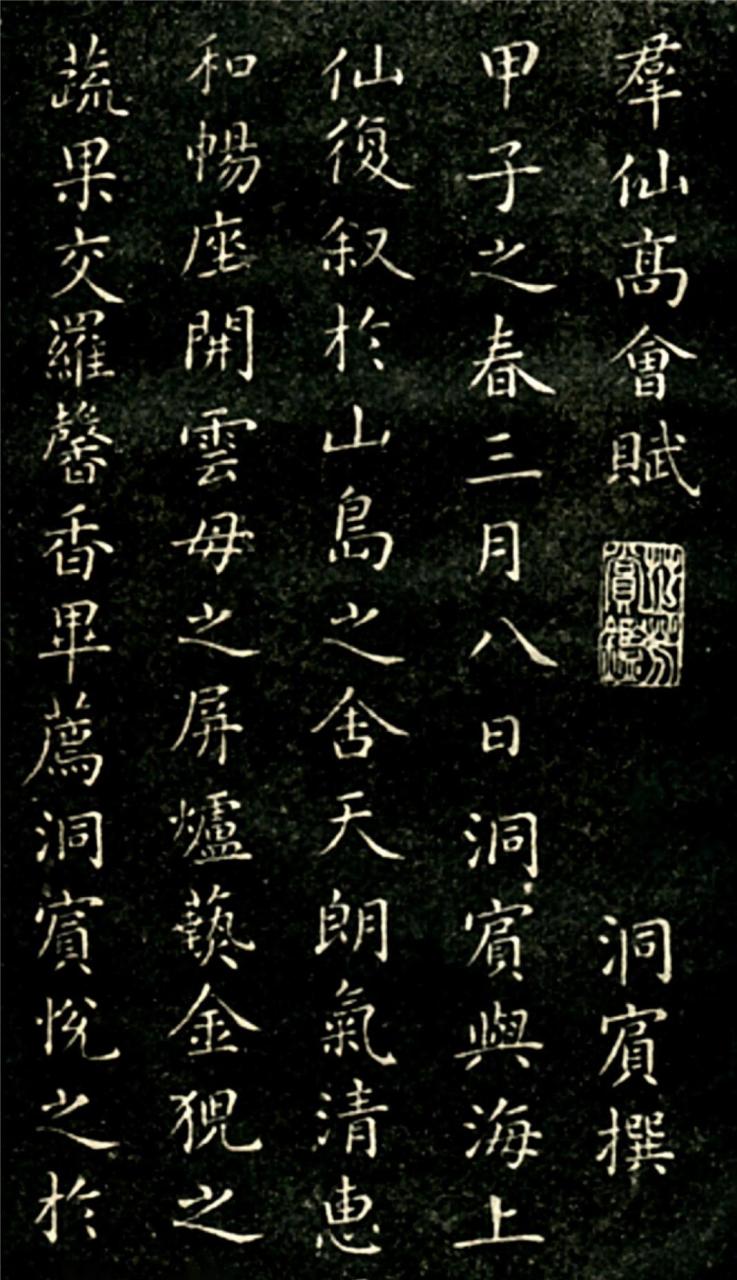 羣仙高會賦 洞賓撰
甲子之春三月八日洞賓與海上
仙復叙於山島之舍天朗氣清恵
和暢座開雲母之屏爐爇金猊之
蔬果交羅馨香畢薦洞賓悅之於